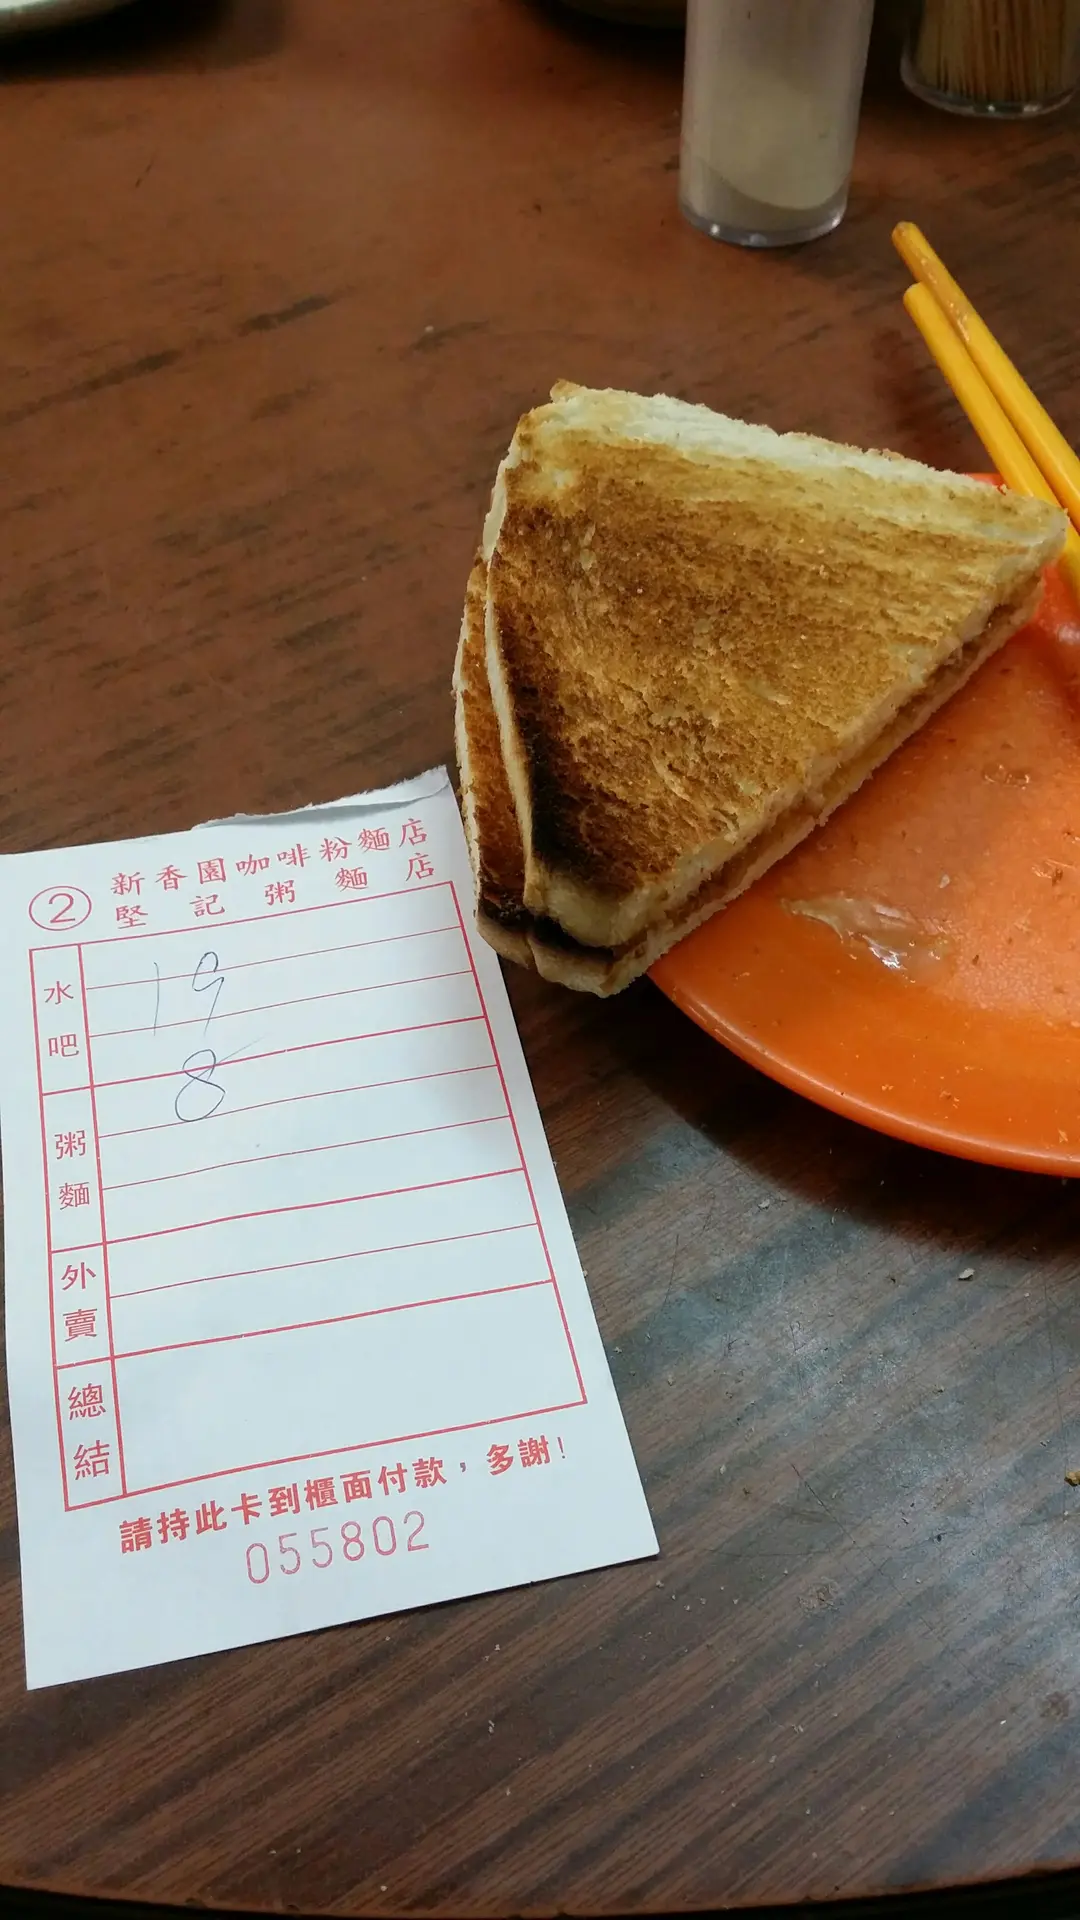 ② 新香園咖啡粉麵店
堅記粥麵店
水吧
19
8
粥麵
外賣
總結
請持此卡到櫃面付款，多謝！
055802